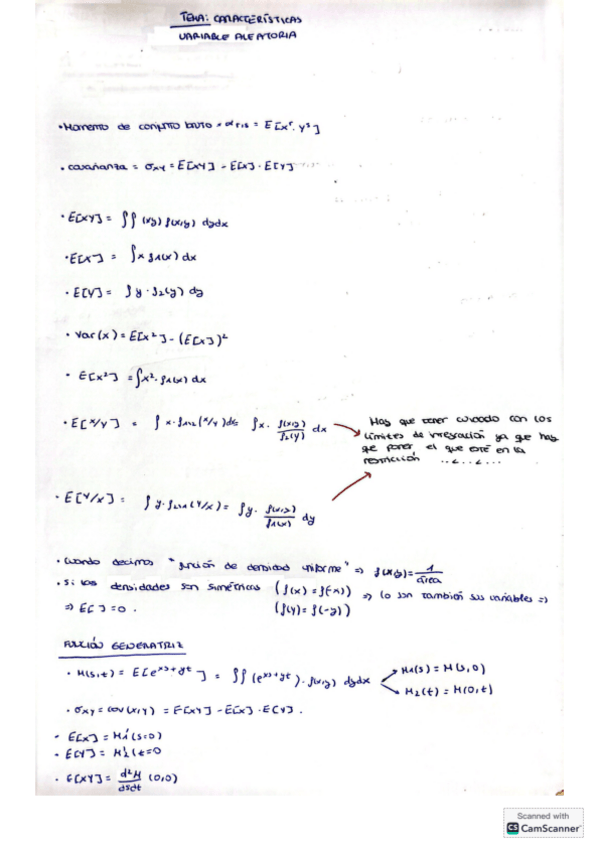 TEMA: CARACTERÍSTICAS
VARIABLE ALEATORIA
· Momento de conjunto bruto = αr,s = E[x^r · y^s]
· covarianza = σxy = E[XY] - E[X] · E[Y]
· E[XY] = ∫∫ (xy) f(x,y) dydx
· E[X] = ∫x f1(x) dx
· E[Y] = ∫ y · f2(y) dy
· Var(x) = E[x²] - (E[x])²
· E[x²] = ∫x² · f1(x) dx
· E[x/y] = ∫ x · f1/2(x/y)dx ∫x · f(x,y)/f2(y) dx
Hay que tener cuidado con los
límites de integración ya que hay
que poner el que esté en la
restricción ..<..<...
· E[Y/x] = ∫ y · f2/1(y/x) = ∫y · f(x,y)/f1(x) dy
· Cuando decimos "función de densidad uniforme" => f(x,y) = 1/área
· Si las densidades son simétricas (f(x) = f(-x)) => lo son también sus variables =>
(f(y) = f(-y))
=> E[ ] = 0.
FUNCIÓN GENERATRIZ
· M(s,t) = E[e^xs+yt] = ∫∫ (e^xs+yt) · f(x,y) dydx
M1(s) = M(s,0)
M2(t) = M(0,t)
· σxy = cov(x,y) = E[XY] - E[X] · E[Y].
· E[X] = M1'(s=0)
· E[Y] = M2'(t=0
· E[XY] = d²M/dsdt (0,0)
Scanned with
CS CamScanner